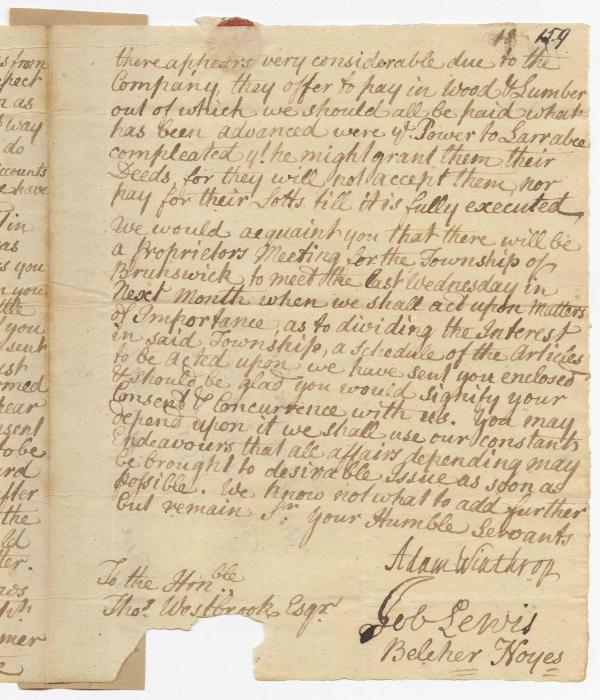 18 159
there appears very considerable due to the
Company, they offer to pay in Wood & Lumber
out of which we should all be paid what
has been advanced were ye. Power to Larrabee
compleated yt. he might grant them their
Deeds, for they will not accept them nor
pay for their Lotts till it is fully executed
We would acquaint you that there will be
a Proprietors Meeting for the Township of
Brunswick to meet the last Wednesday in
Next Month when we shall act upon Matters
of Importance, as to dividing the Interest
in said Township, a schedule of the Articles
to be acted upon we have sent you enclosed
& should be glad you would signify your
Consent & Concurrence with us. You may
depend upon it we shall use our constant
Endeavours that all affairs depending may
be brought to desirable Issue as soon as
Possible. We know not what to add further
but remain Sr. Your Humble Servants
Adam Winthrop
To the Honble
Thos. Westbrook Esqr.
Job Lewis
Belcher Noyes